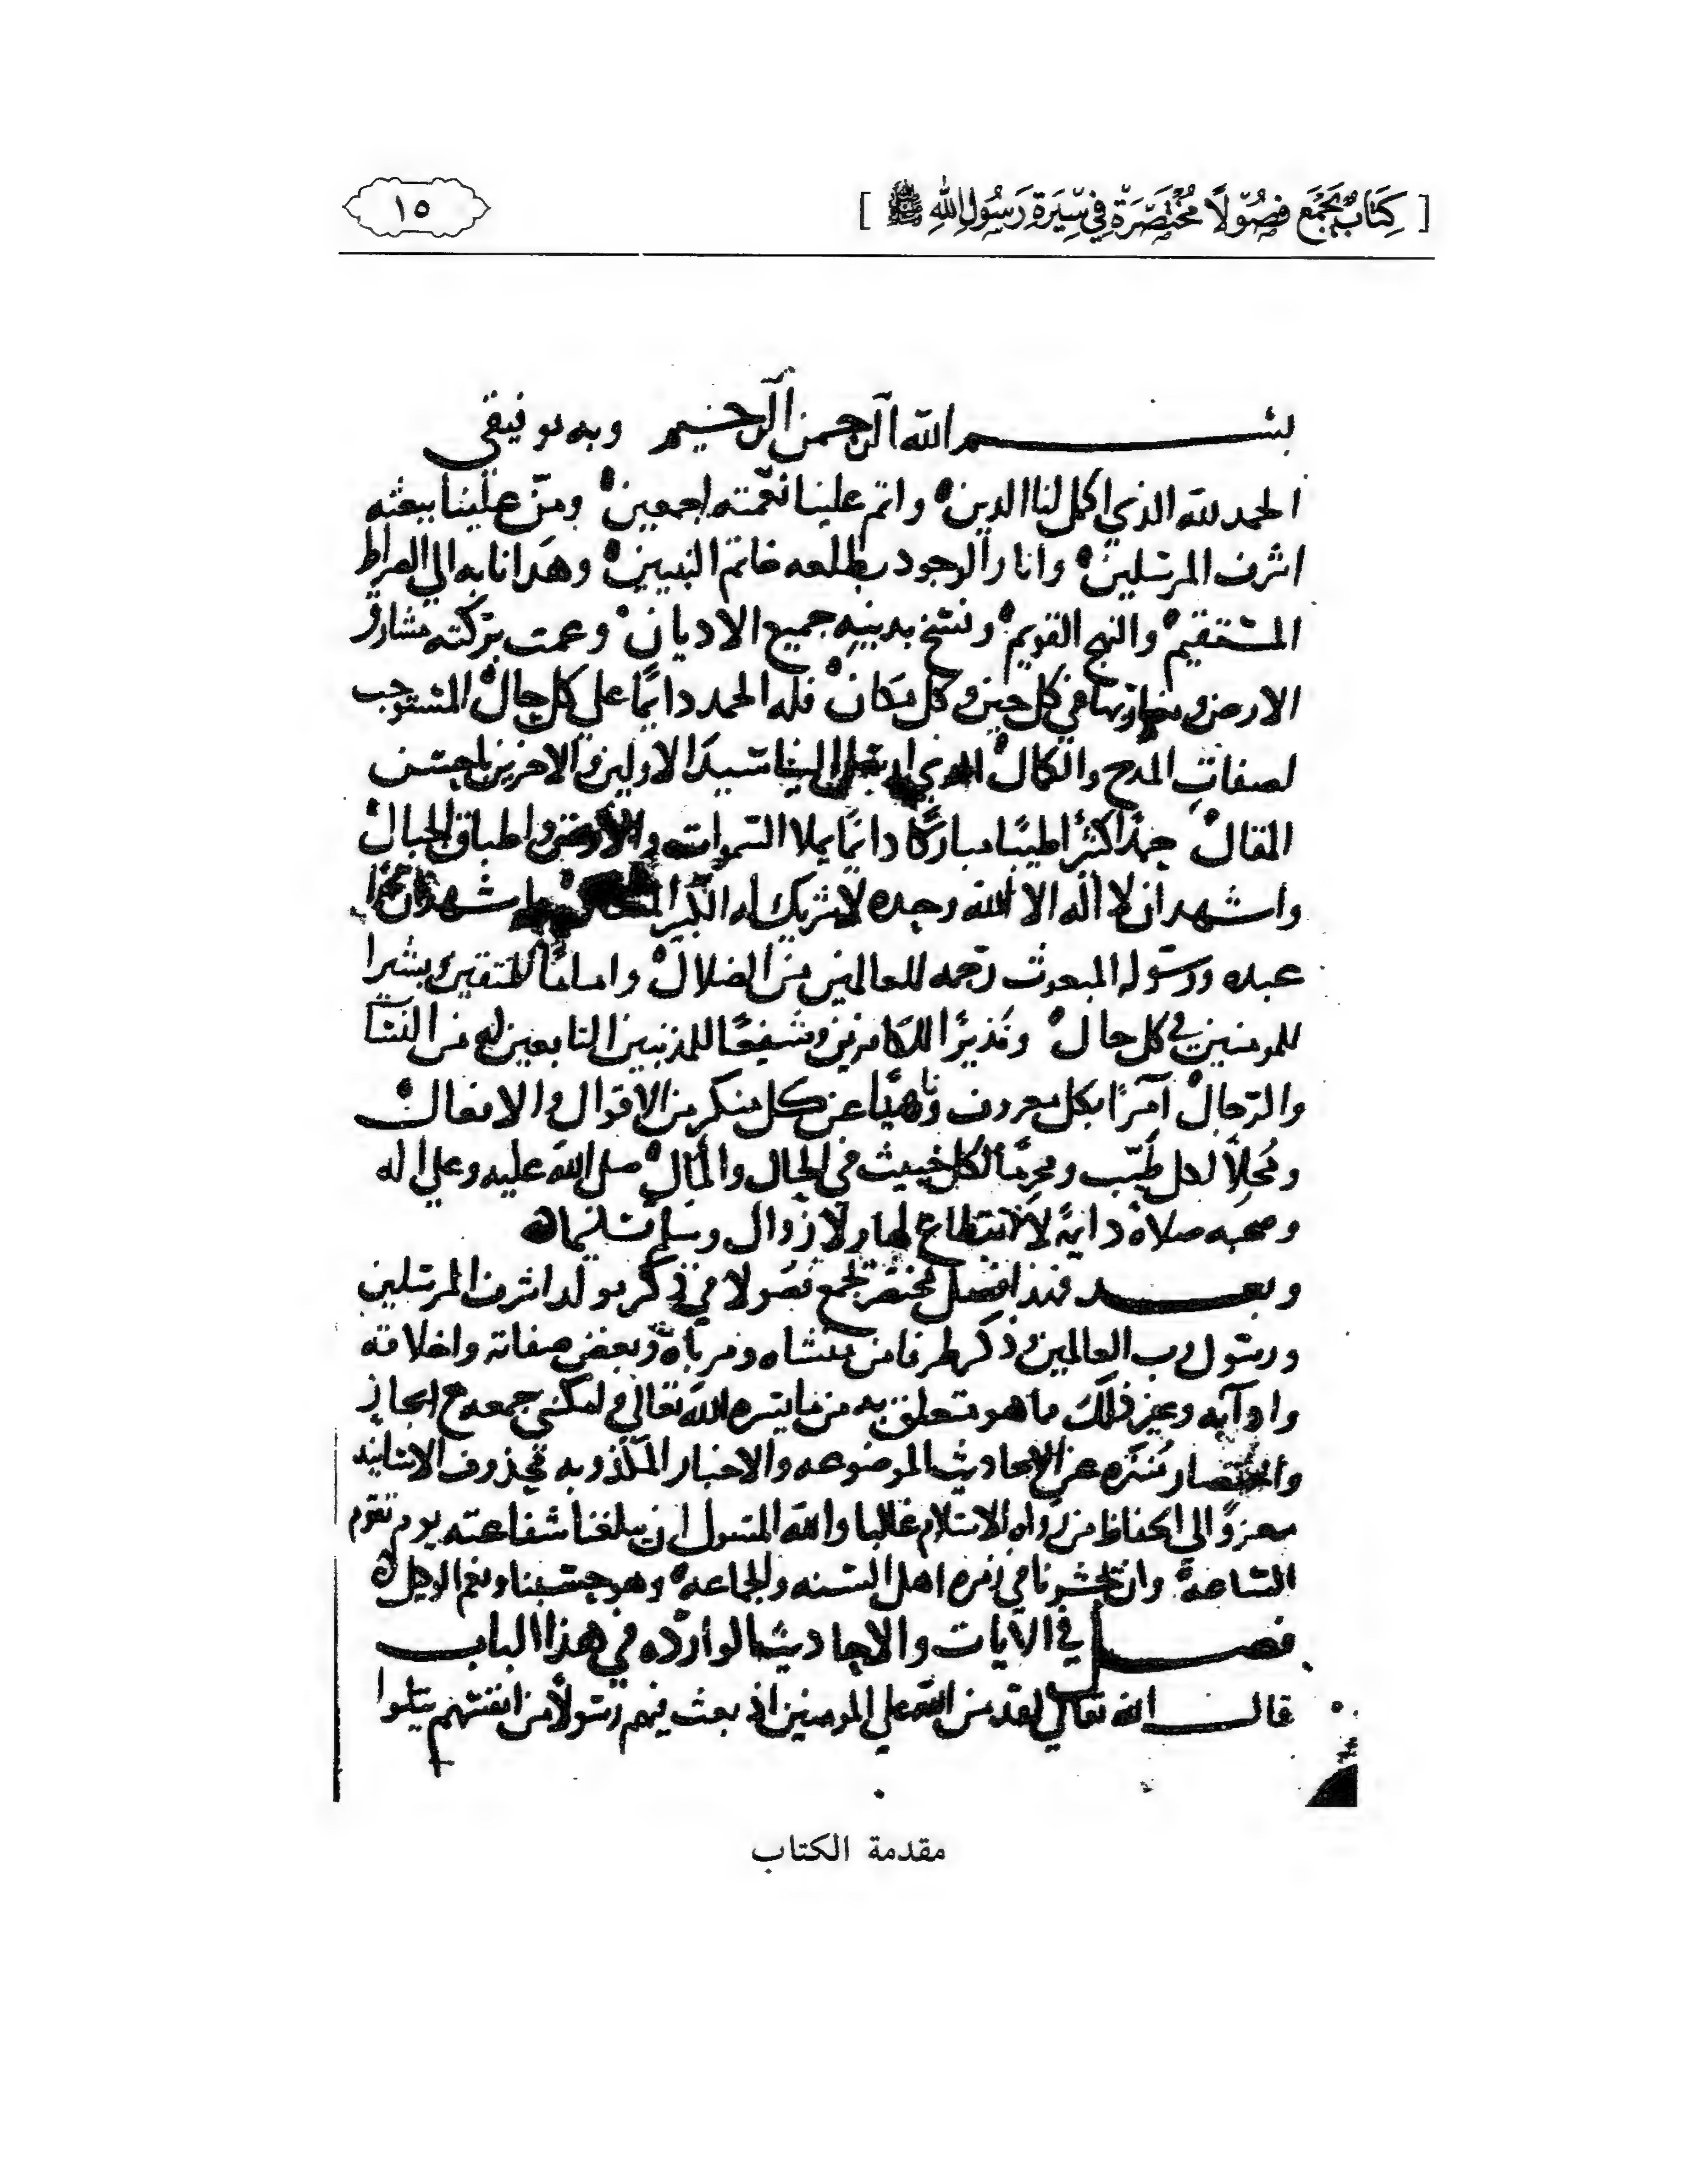 [ كِتَابٌ يَجْمَع فُصُوْلًا مُخْتَصَرَة فِي سِيْرَة رَسُوْلِ اللهِ ﷺ ]
١٥
بسم الله الرحمن الرحيم وبه توفيقي
الحمد لله الذي اكمل لنا الدين واتم علينا نعمته اجمعين ومنّ علينا ببعثه
اشرف المرسلين وانار الوجود بطلعه خاتم النبيين وهدانا به الي الصراط
المستقيم والنهج القويم ونسخ بدينه جميع الاديان وعمت بركته مشارق
الارض ومغاربها في كل حين وكل مكان فله الحمد دايمًا علي كل حال المستوجب
لصفات المدح والكمال الذي الينا سيد الاولين والاخرين باحسن
المقال حمدًا كثيرًا طيبًا مباركًا دائمًا يملا السموات والارض واطباق الجبال
واشهد ان لا اله الا الله وحده لا شريك له الكبير واشهد ان محمدًا
عبده ورسوله المبعوث رحمه للعالمين من الضلال وامامًا للمتقين وبشيرا
للمومنين في كل حال ونذيرًا للكافرين وشفيعًا للمذنبين التابعين له من النسآ
والرجال آمرًا بكل معروف وناهيًا عن كل منكر من الاقوال والافعال
ومُحلِلًا لكل طيّب ومحرمًا لكل خبيث في الحال والمآل صلى الله عليه وعلي اله
وصحبه صلاة دايمةً لا انقطاع لها ولا زوال وسلم تسليما
وبعد فهذا فصل مختصر تجمع فصولا في ذكر مولد اشرف المرسلين
ورسول رب العالمين وذكر طرفا من منشاه ومرباه وبعض صفاته واخلاقه
وادآبه وغير ذلك ما هو متعلق به من ما يسره الله تعالي لمكنني جمعه مع ايجاز
واختصار مُنَزه عن الاحاديث الموضوعه والاخبار المكذوبه محذوف الاسانيد
معزوًا الي الحفاظ من رواه الاسلام غالبا والله المسول ان يبلغنا شفاعته يوم تقوم
الساعة وان يحشرنا في زمره اهل السنه والجماعه وهو حسبنا ونعم الوكيل
فصل في الآيات والاحاديث الوارده في هذا الباب
قال الله تعالي لقد من الله علي المومنين اذ بعث فيهم رسولًا من انفسهم يتلوا
مقدمة الكتاب